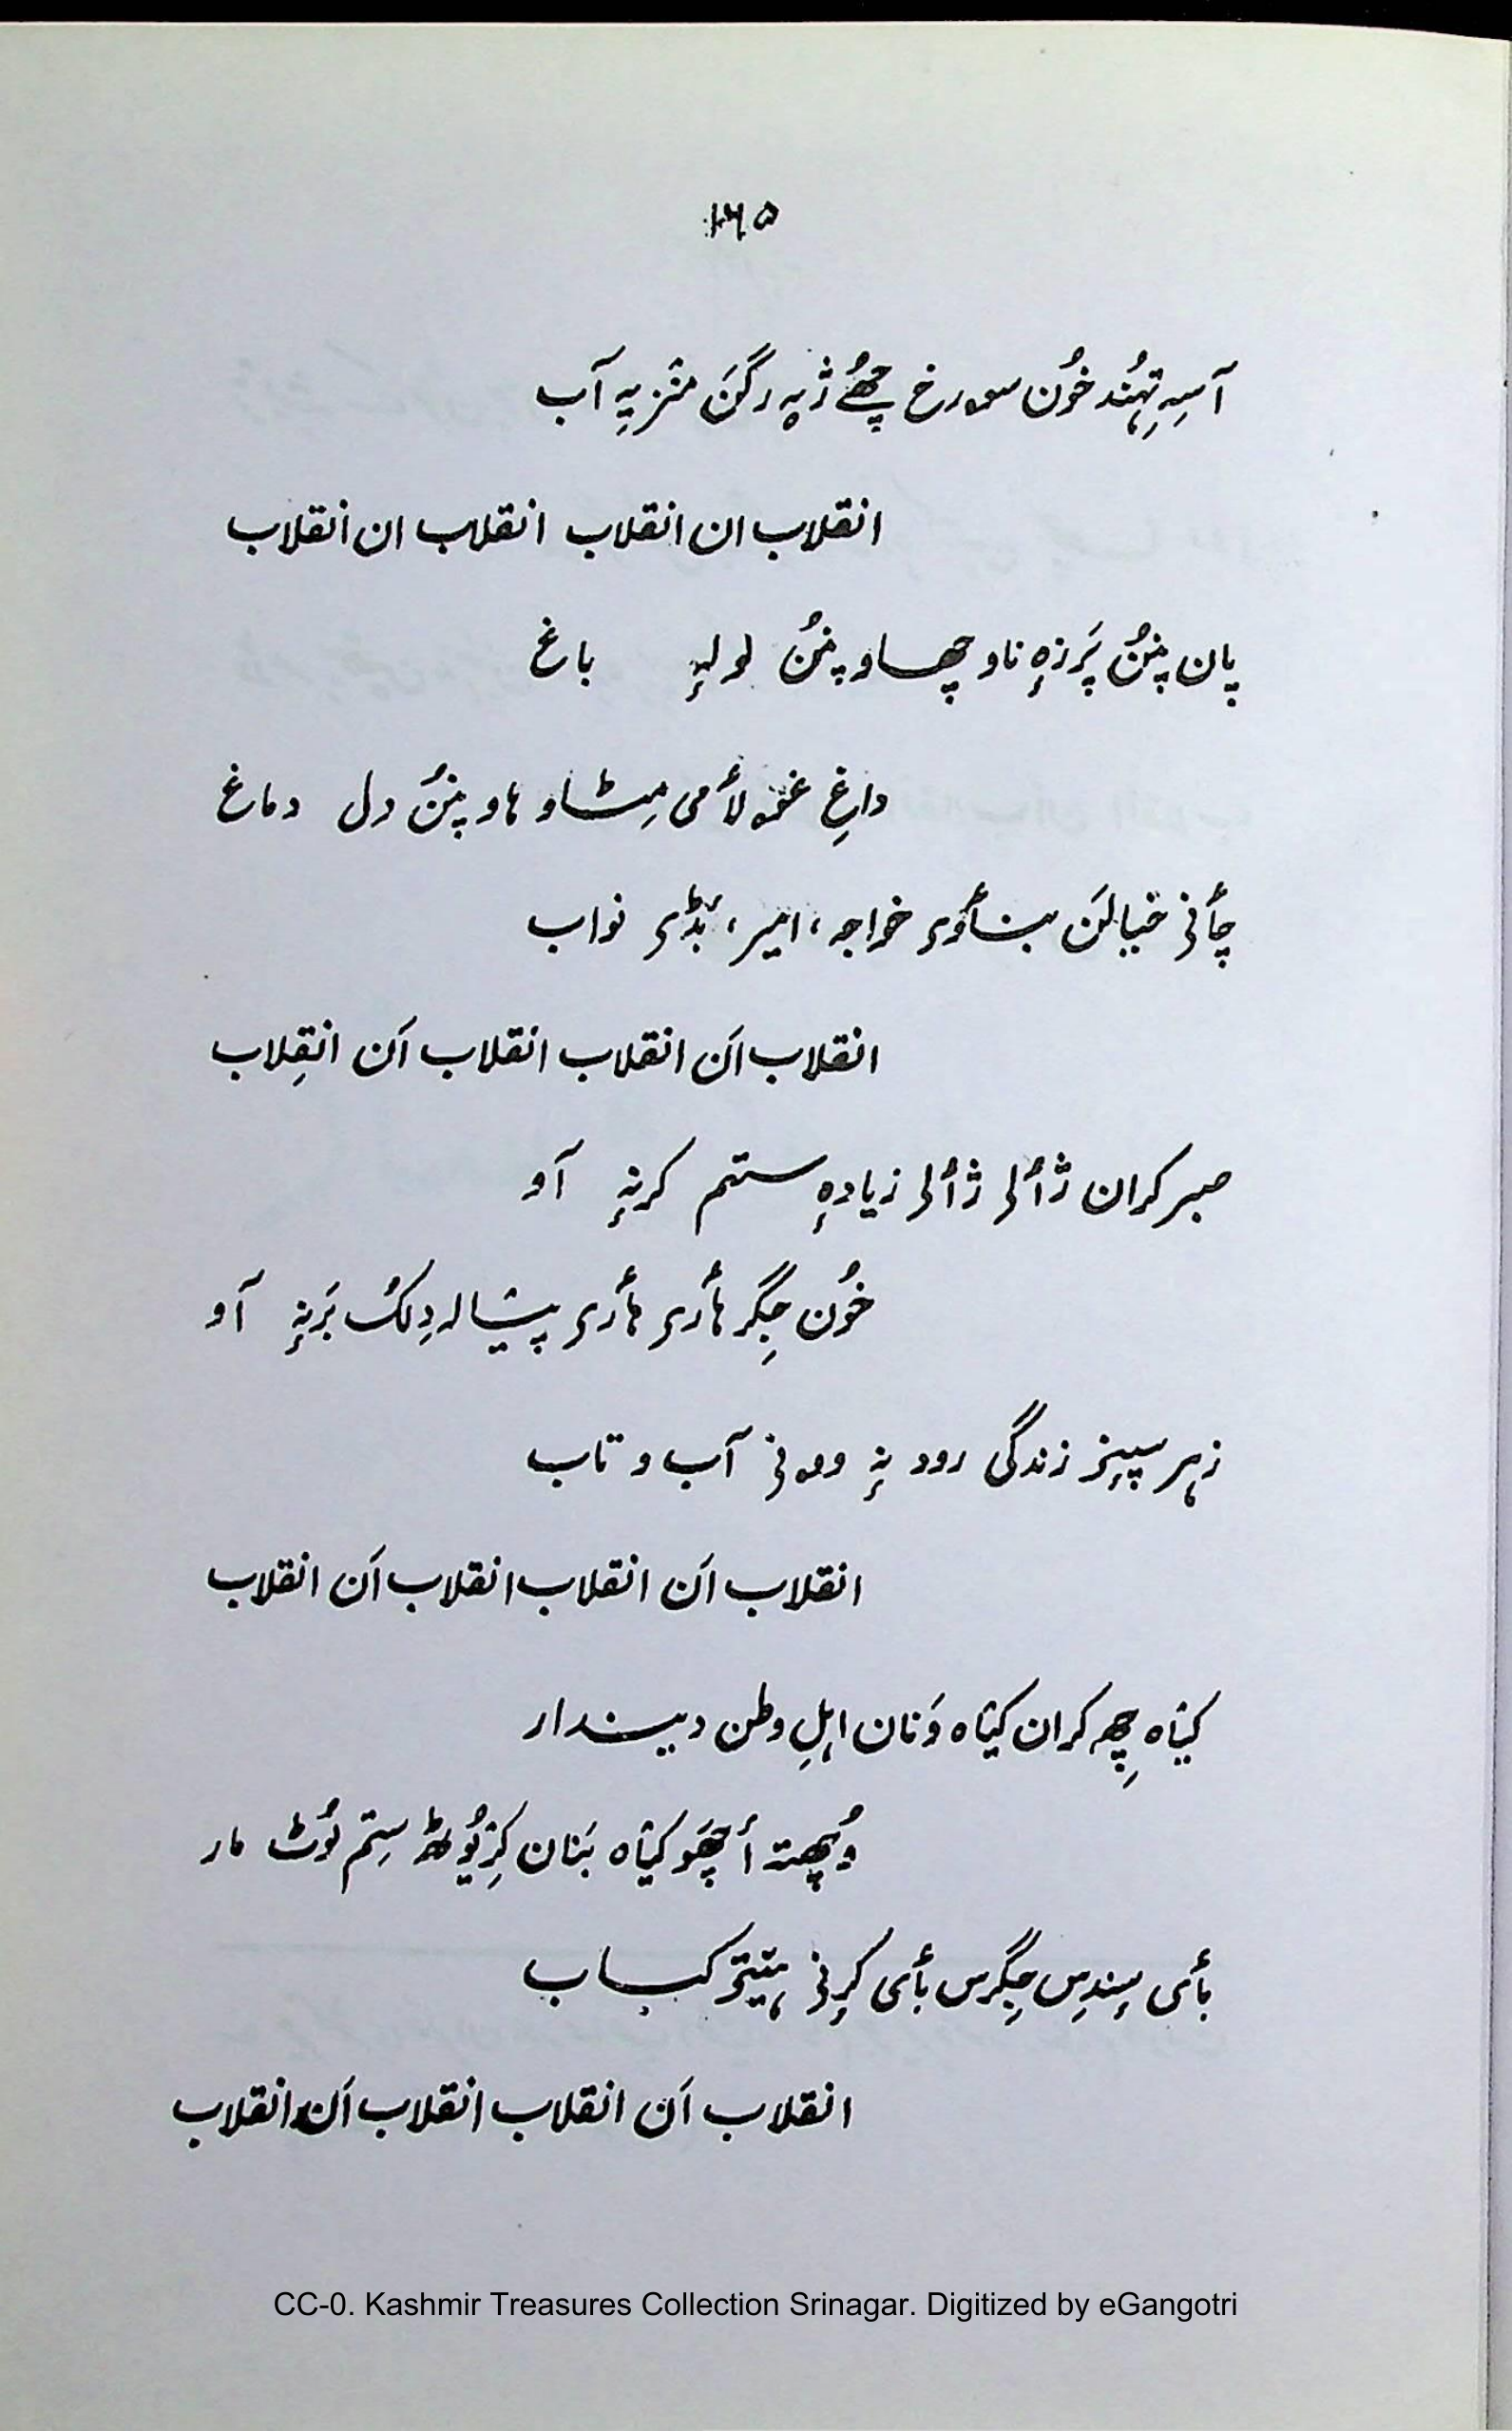 ۱۲۵
آسہِ تِہُند خُون سورخ چھُے ژیہ رگَن منٛز یِہ آب
انقلاب ان انقلاب انقلاب ان انقلاب
پان پنُن پَرزہٕ ناو چھاو پنُن لولہٕ باغ
داغِ غۄلأمی مِٹاو ہاو پنُن دل دماغ
چأنی خیالَن بنأوی خواجہ، امیر، بٔڈی نواب
انقلاب اَن انقلاب انقلاب اَن انقِلاب
صبر کران ژألی ژألی زیادہٕ ستم کرنہٕ آو
خُون جِگر ہأری ہأری پیالہ دِلُک بَرنہٕ آو
زہر سپنز زندگی روو نہٕ وۄنی آب و تاب
انقلاب اَن انقلاب انقلاب اَن انقلاب
کیٛاہ چھِ کران کیٛاہ وَنان اہلِ وطن دیندار
وُچھتہ أچھَو کیٛاہ بَنان کرٛیُوٹھ سِتم لُوٹ مار
بأی سٕندِس جِگرس بأی کٕرنی ہیٚتۍ کباب
انقلاب اَن انقلاب انقلاب اَن انقلاب
CC-0. Kashmir Treasures Collection Srinagar. Digitized by eGangotri